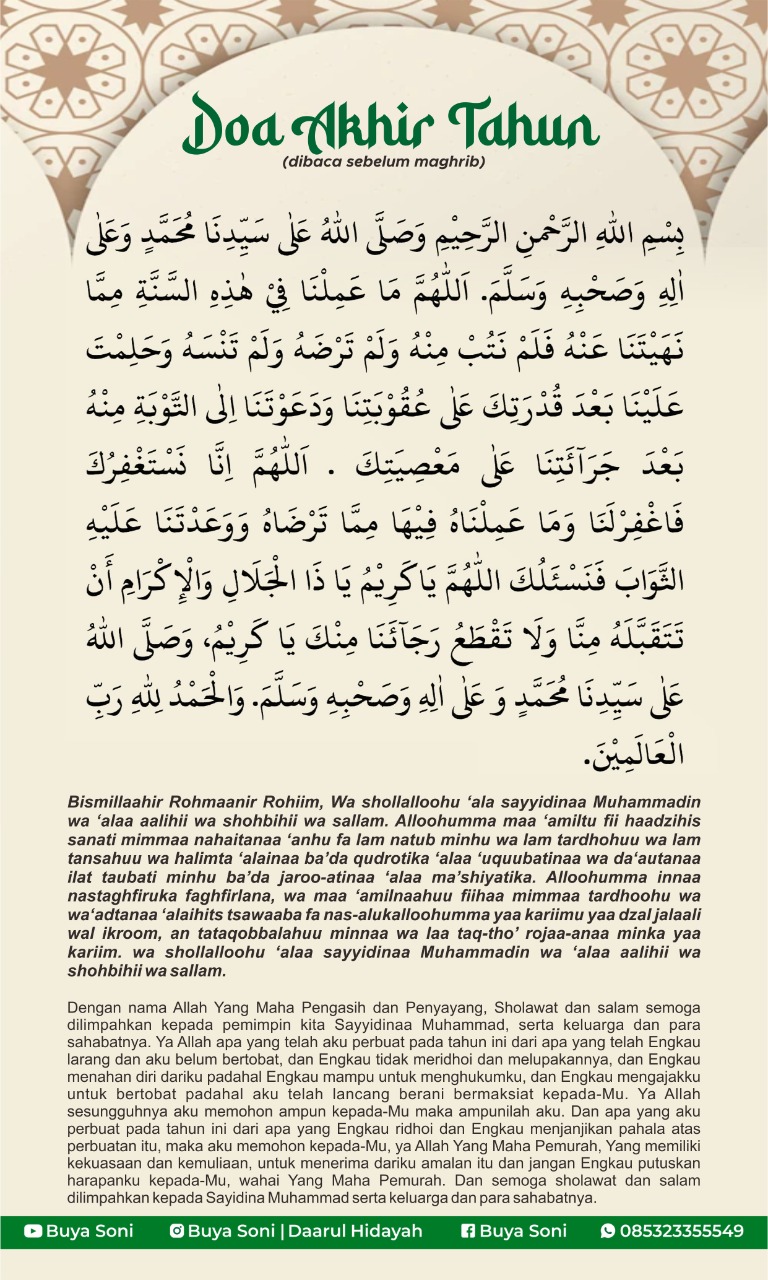 Doa Akhir Tahun
(dibaca sebelum maghrib)
بِسْمِ اللهِ الرَّحْمنِ الرَّحِيْمِ وَصَلَّى اللهُ عَلٰى سَيِّدِنَا مُحَمَّدٍ وَعَلٰى
اٰلِهِ وَصَحْبِهِ وَسَلَّمَ. اَللّٰهُمَّ مَا عَمِلْنَا فِيْ هٰذِهِ السَّنَّةِ مِمَّا
نَهَيْتَنَا عَنْهُ فَلَمْ نَتُبْ مِنْهُ وَلَمْ تَرْضَهُ وَلَمْ تَنْسَهُ وَحَلِمْتَ
عَلَيْنَا بَعْدَ قُدْرَتِكَ عَلٰى عُقُوْبَتِنَا وَدَعَوْتَنَا اِلٰى التَّوْبَةِ مِنْهُ
بَعْدَ جَرَآئَتِنَا عَلٰى مَعْصِيَتِكَ . اَللّٰهُمَّ اِنَّا نَسْتَغْفِرُكَ
فَاغْفِرْلَنَا وَمَا عَمِلْنَاهُ فِيْهَا مِمَّا تَرْضَاهُ وَوَعَدْتَنَا عَلَيْهِ
الثَّوَابَ فَنَسْئَلُكَ اللّٰهُمَّ يَاكَرِيْمُ يَا ذَا الْجَلَالِ وَالْإِكْرَامِ أَنْ
تَتَقَبَّلَهُ مِنَّا وَلَا تَقْطَعُ رَجَآئَنَا مِنْكَ يَا كَرِيْمُ، وَصَلَّى اللهُ
عَلٰى سَيِّدِنَا مُحَمَّدٍ وَ عَلٰى اٰلِهِ وَصَحْبِهِ وَسَلَّمَ. وَالْحَمْدُ لِلّٰهِ رَبِّ
الْعَالَمِيْنَ.
Bismillaahir Rohmaanir Rohiim, Wa shollalloohu ‘ala sayyidinaa Muhammadin
wa ‘alaa aalihii wa shohbihii wa sallam. Alloohumma maa ‘amiltu fii haadzihis
sanati mimmaa nahaitanaa ‘anhu fa lam natub minhu wa lam tardhohuu wa lam
tansahuu wa halimta ‘alainaa ba’da qudrotika ‘alaa ‘uquubatinaa wa da‘autanaa
ilat taubati minhu ba’da jaroo-atinaa ‘alaa ma’shiyatika. Alloohumma innaa
nastaghfiruka faghfirlana, wa maa ‘amilnaahuu fiihaa mimmaa tardhoohu wa
wa‘adtanaa ‘alaihits tsawaaba fa nas-alukalloohumma yaa kariimu yaa dzal jalaali
wal ikroom, an tataqobbalahuu minnaa wa laa taq-tho’ rojaa-anaa minka yaa
kariim. wa shollalloohu ‘alaa sayyidinaa Muhammadin wa ‘alaa aalihii wa
shohbihii wa sallam.
Dengan nama Allah Yang Maha Pengasih dan Penyayang, Sholawat dan salam semoga
dilimpahkan kepada pemimpin kita Sayyidinaa Muhammad, serta keluarga dan para
sahabatnya. Ya Allah apa yang telah aku perbuat pada tahun ini dari apa yang telah Engkau
larang dan aku belum bertobat, dan Engkau tidak meridhoi dan melupakannya, dan Engkau
menahan diri dariku padahal Engkau mampu untuk menghukumku, dan Engkau mengajakku
untuk bertobat padahal aku telah lancang berani bermaksiat kepada-Mu. Ya Allah
sesungguhnya aku memohon ampun kepada-Mu maka ampunilah aku. Dan apa yang aku
perbuat pada tahun ini dari apa yang Engkau ridhoi dan Engkau menjanjikan pahala atas
perbuatan itu, maka aku memohon kepada-Mu, ya Allah Yang Maha Pemurah, Yang memiliki
kekuasaan dan kemuliaan, untuk menerima dariku amalan itu dan jangan Engkau putuskan
harapanku kepada-Mu, wahai Yang Maha Pemurah. Dan semoga sholawat dan salam
dilimpahkan kepada Sayidina Muhammad serta keluarga dan para sahabatnya.
Buya Soni Buya Soni | Daarul Hidayah Buya Soni 085323355549